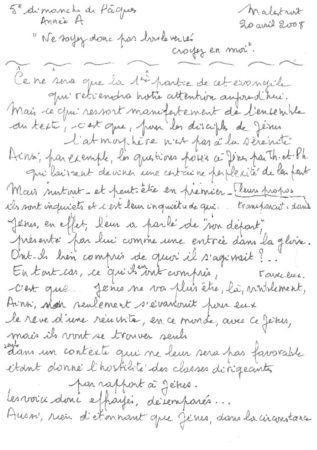 5e dimanche de Pâques Malestroit
Année A 20 avril 2008
"Ne soyez donc pas bouleversés
croyez en moi".
Ce ne sera que la 1ère partie de cet évangile
qui retiendra notre attention aujourd'hui.
Mais ce qui ressort manifestement de l'ensemble
du texte, c'est que, pour les disciples de Jésus
l'atmosphère n'est pas à la sérénité
Ainsi, par exemple, les questions posées à Jésus par Th. et Ph.
qui laissent deviner une certaine perplexité de leur part
Mais surtout - et peut-être en premier - leurs propos
ils sont inquiets et c'est leur inquiétude qui transparaît dans
Jésus, en effet, leur a parlé de "son départ",
présenté par lui comme une entrée dans la gloire.
Ont-ils bien compris de quoi il s'agissait?...
En tout cas, ce qu'ils ont compris,
c'est que Jésus ne va plus être, là, visiblement, avec eux.
Ainsi, non seulement s'évanouit pour eux
le rêve d'une réussite, en ce monde, avec ce Jésus,
mais ils vont se trouver seuls
dans un contexte qui ne leur sera pas favorable
étant donné l'hostilité des classes dirigeantes
par rapport à Jésus.
Les voici donc effrayés, désemparés...
Aussi, rien d'étonnant que Jésus, dans la circonstance